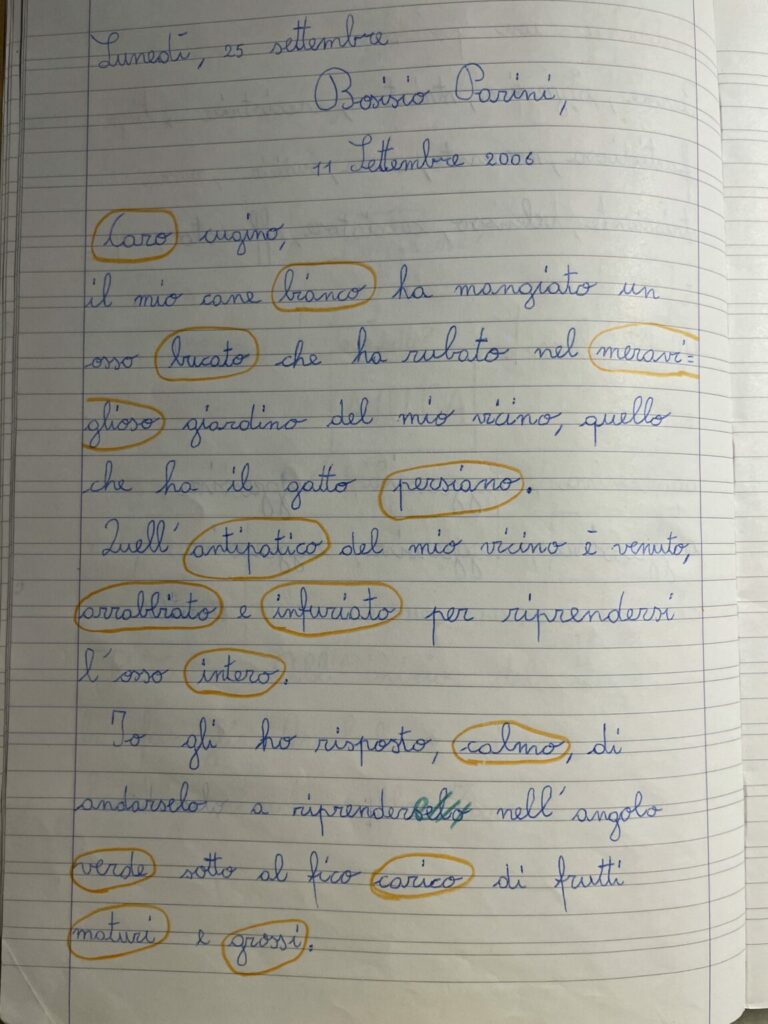 Lunedì, 25 settembre
Bosisio Parini,
11 Settembre 2006
Caro cugino,
il mio cane bianco ha mangiato un
osso bucato che ha rubato nel meravi=
glioso giardino del mio vicino, quello
che ha il gatto persiano.
Quell'antipatico del mio vicino è venuto,
arrabbiato e infuriato per riprendersi
l'osso intero.
Io gli ho risposto, calmo, di
andarselo a riprendere nell'angolo
verde sotto al fico carico di frutti
maturi e grossi.